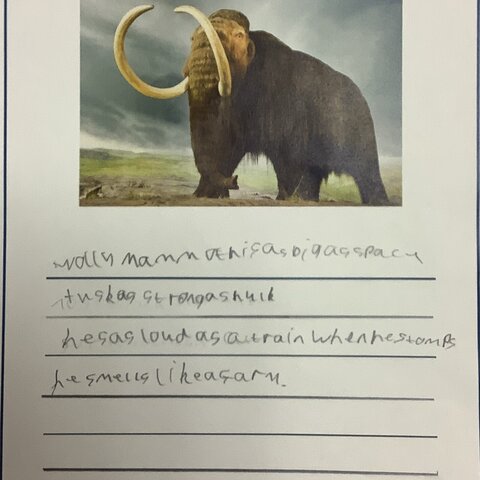 wolly mammoth is as big as space
it tusk as strong as hulk
he s as loud as a train when he stomps
he smells like a farm.